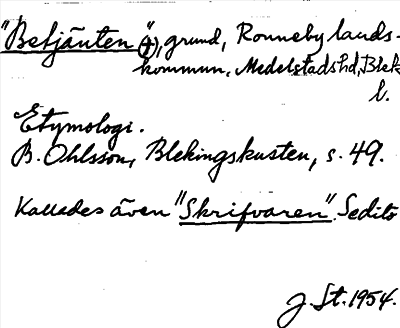 "Betjänten"(⸸), grund, Ronneby lands-
kommun, Medelstads hd, Blek.
l.
Etymologi.
B. Ohlsson, Blekingskusten, s. 49.
Kallades även "Skrifvaren". Sedits
J. St. 1954.